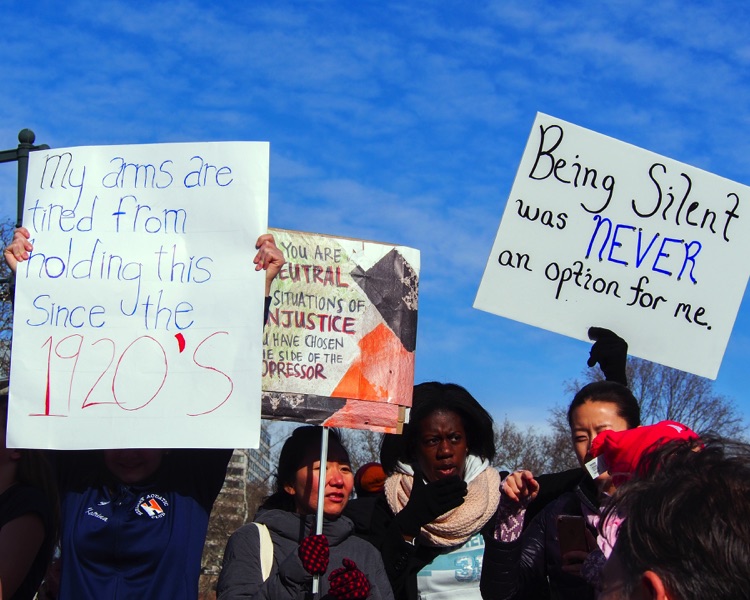 My arms are
tired from
holding this
Since the
1920'S
YOU ARE
EUTRAL
SITUATIONS OF
NJUSTICE
HAVE CHOSEN
SIDE OF THE
PRESSOR
Being Silent
was NEVER
an option for me.
Katrina